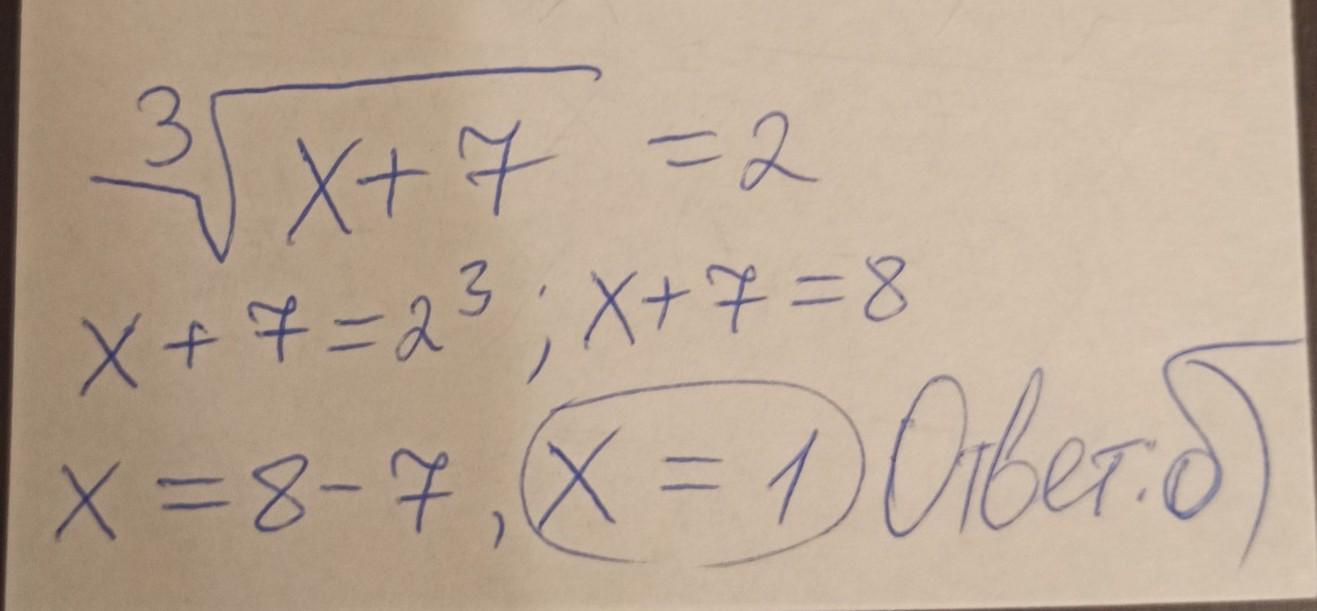 ³√x+7 = 2
x + 7 = 2³ ; x + 7 = 8
x = 8 - 7, x = 1 Ответ: б)